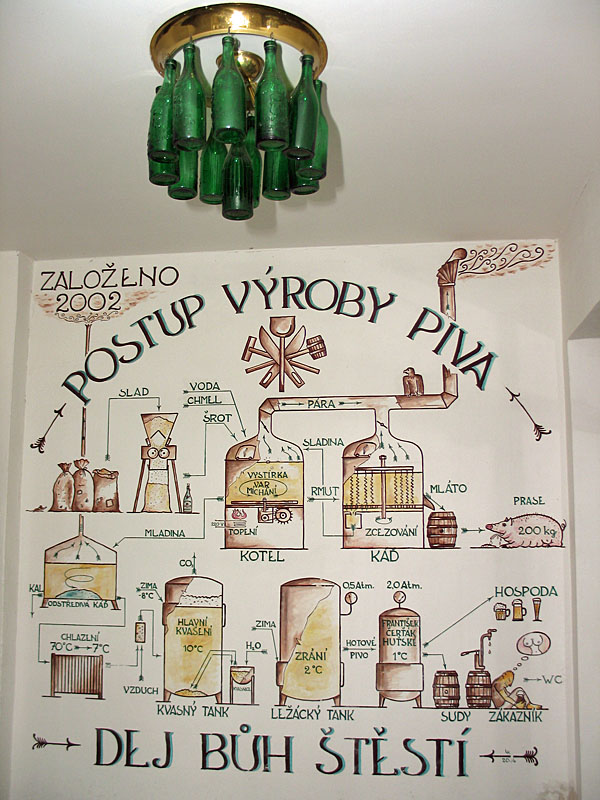 ZALOŽENO
2002
POSTUP VÝROBY PIVA
SLAD
VODA
CHMEL
ŠROT
PÁRA
SLADINA
VYSTÍRKA
VAR
MÍCHÁNÍ
RMUT
TOPENÍ
KOTEL
ZCEZOVÁNÍ
KÁĎ
MLÁTO
PRASE
200 kg
MLADINA
KAL
ODSTŘEDIVÁ KÁĎ
CHLAZENÍ
70°C 7°C
ZIMA
-8°C
VZDUCH
CO2
HLAVNÍ
KVAŠENÍ
10°C
H2O
KVASNICE
KVASNÝ TANK
ZIMA
ZRÁNÍ
2°C
LEŽÁCKÝ TANK
0,5 Atm.
HOTOVÉ
PIVO
2,0 Atm.
FRANTIŠEK
ČERŤÁK
HUŤSKÉ
1°C
HOSPODA
SUDY
ZÁKAZNÍK
WC
DEJ BŮH ŠTĚSTÍ